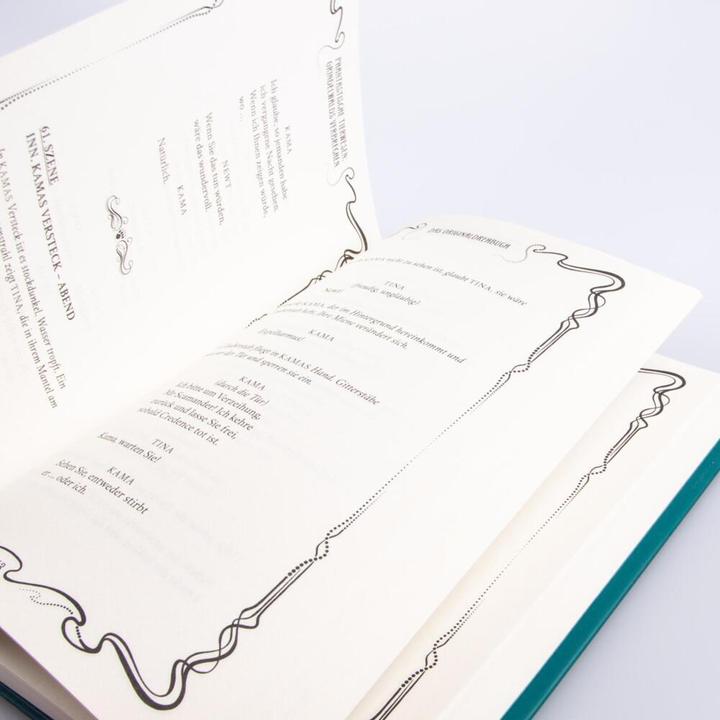 PHANTASTISCHE TIERWESEN:
GRINDELWALDS VERBRECHEN
KAMA
Ich glaube, so jemanden habe
ich vergangene Nacht gesehen.
Wenn ich Ihnen zeigen würde,
wo ...
NEWT
Wenn Sie das tun würden,
wäre das wundervoll.
KAMA
Natürlich.
61. SZENE
INN. KAMAS VERSTECK – ABEND
In KAMAS Versteck ist es stockdunkel. Wasser tropft. Ein
zeigt TINA, die in ihrem Mantel am
DAS ORIGINALDREHBUCH
nicht zu sehen ist, glaubt TINA, sie wäre
TINA
(freudig, ungläubig)
Newt!
KAMA, der im Hintergrund hereinkommt und
Ihre Miene verändert sich.
KAMA
Expelliarmus!
fliegt in KAMAS Hand. Gitterstäbe
der Tür und sperren sie ein.
KAMA
(durch die Tür)
Ich bitte um Verzeihung,
Mr Scamander! Ich kehre
zurück und lasse Sie frei,
sobald Credence tot ist.
TINA
Kama, warten Sie!
KAMA
Sehen Sie, entweder stirbt
er ... oder ich.